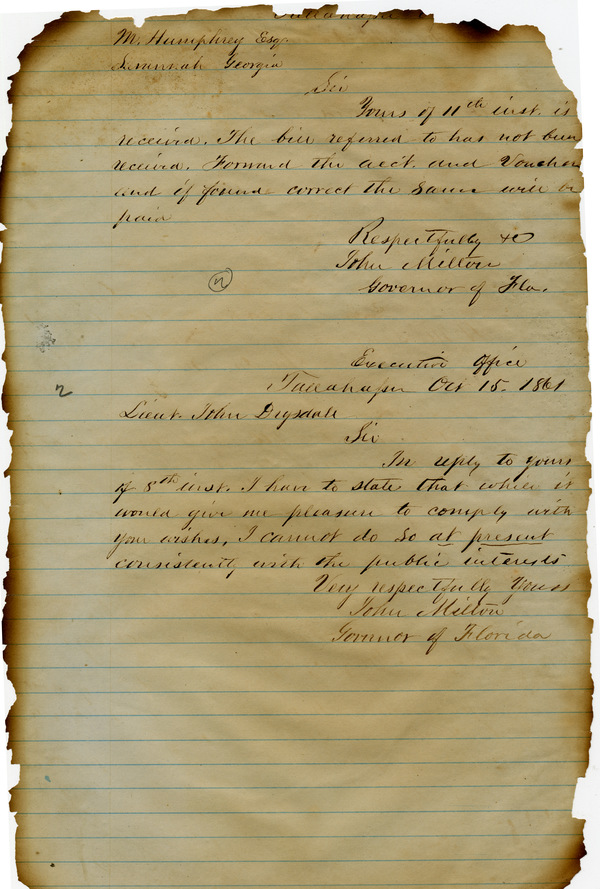 Tallahassee
M. Humphrey Esq.
Savannah Georgia
Sir
Yours of 11th inst. is
received. The bill referred to has not been
received. Forward the acct. and Voucher
and if found correct the same will be
paid
Respectfully &c
John Milton
Governor of Fla.
2
Executive Office
Tallahassee Oct 15. 1861
2
Lieut. John Dogsdale
Sir
In reply to yours
of 8th inst. I have to state that while it
would give me pleasure to comply with
your wishes, I cannot do so at present
consistently with the public interests
Very respectfully Yours
John Milton
Governor of Florida